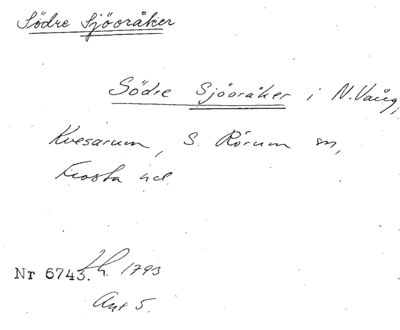 Södre Sjöoråker
Södre Sjöoråker i N. Vång,
Kvesarum, S. Rörum sn,
Frosta hd.
Nr 6743. Lh. 1793
Ant 5.